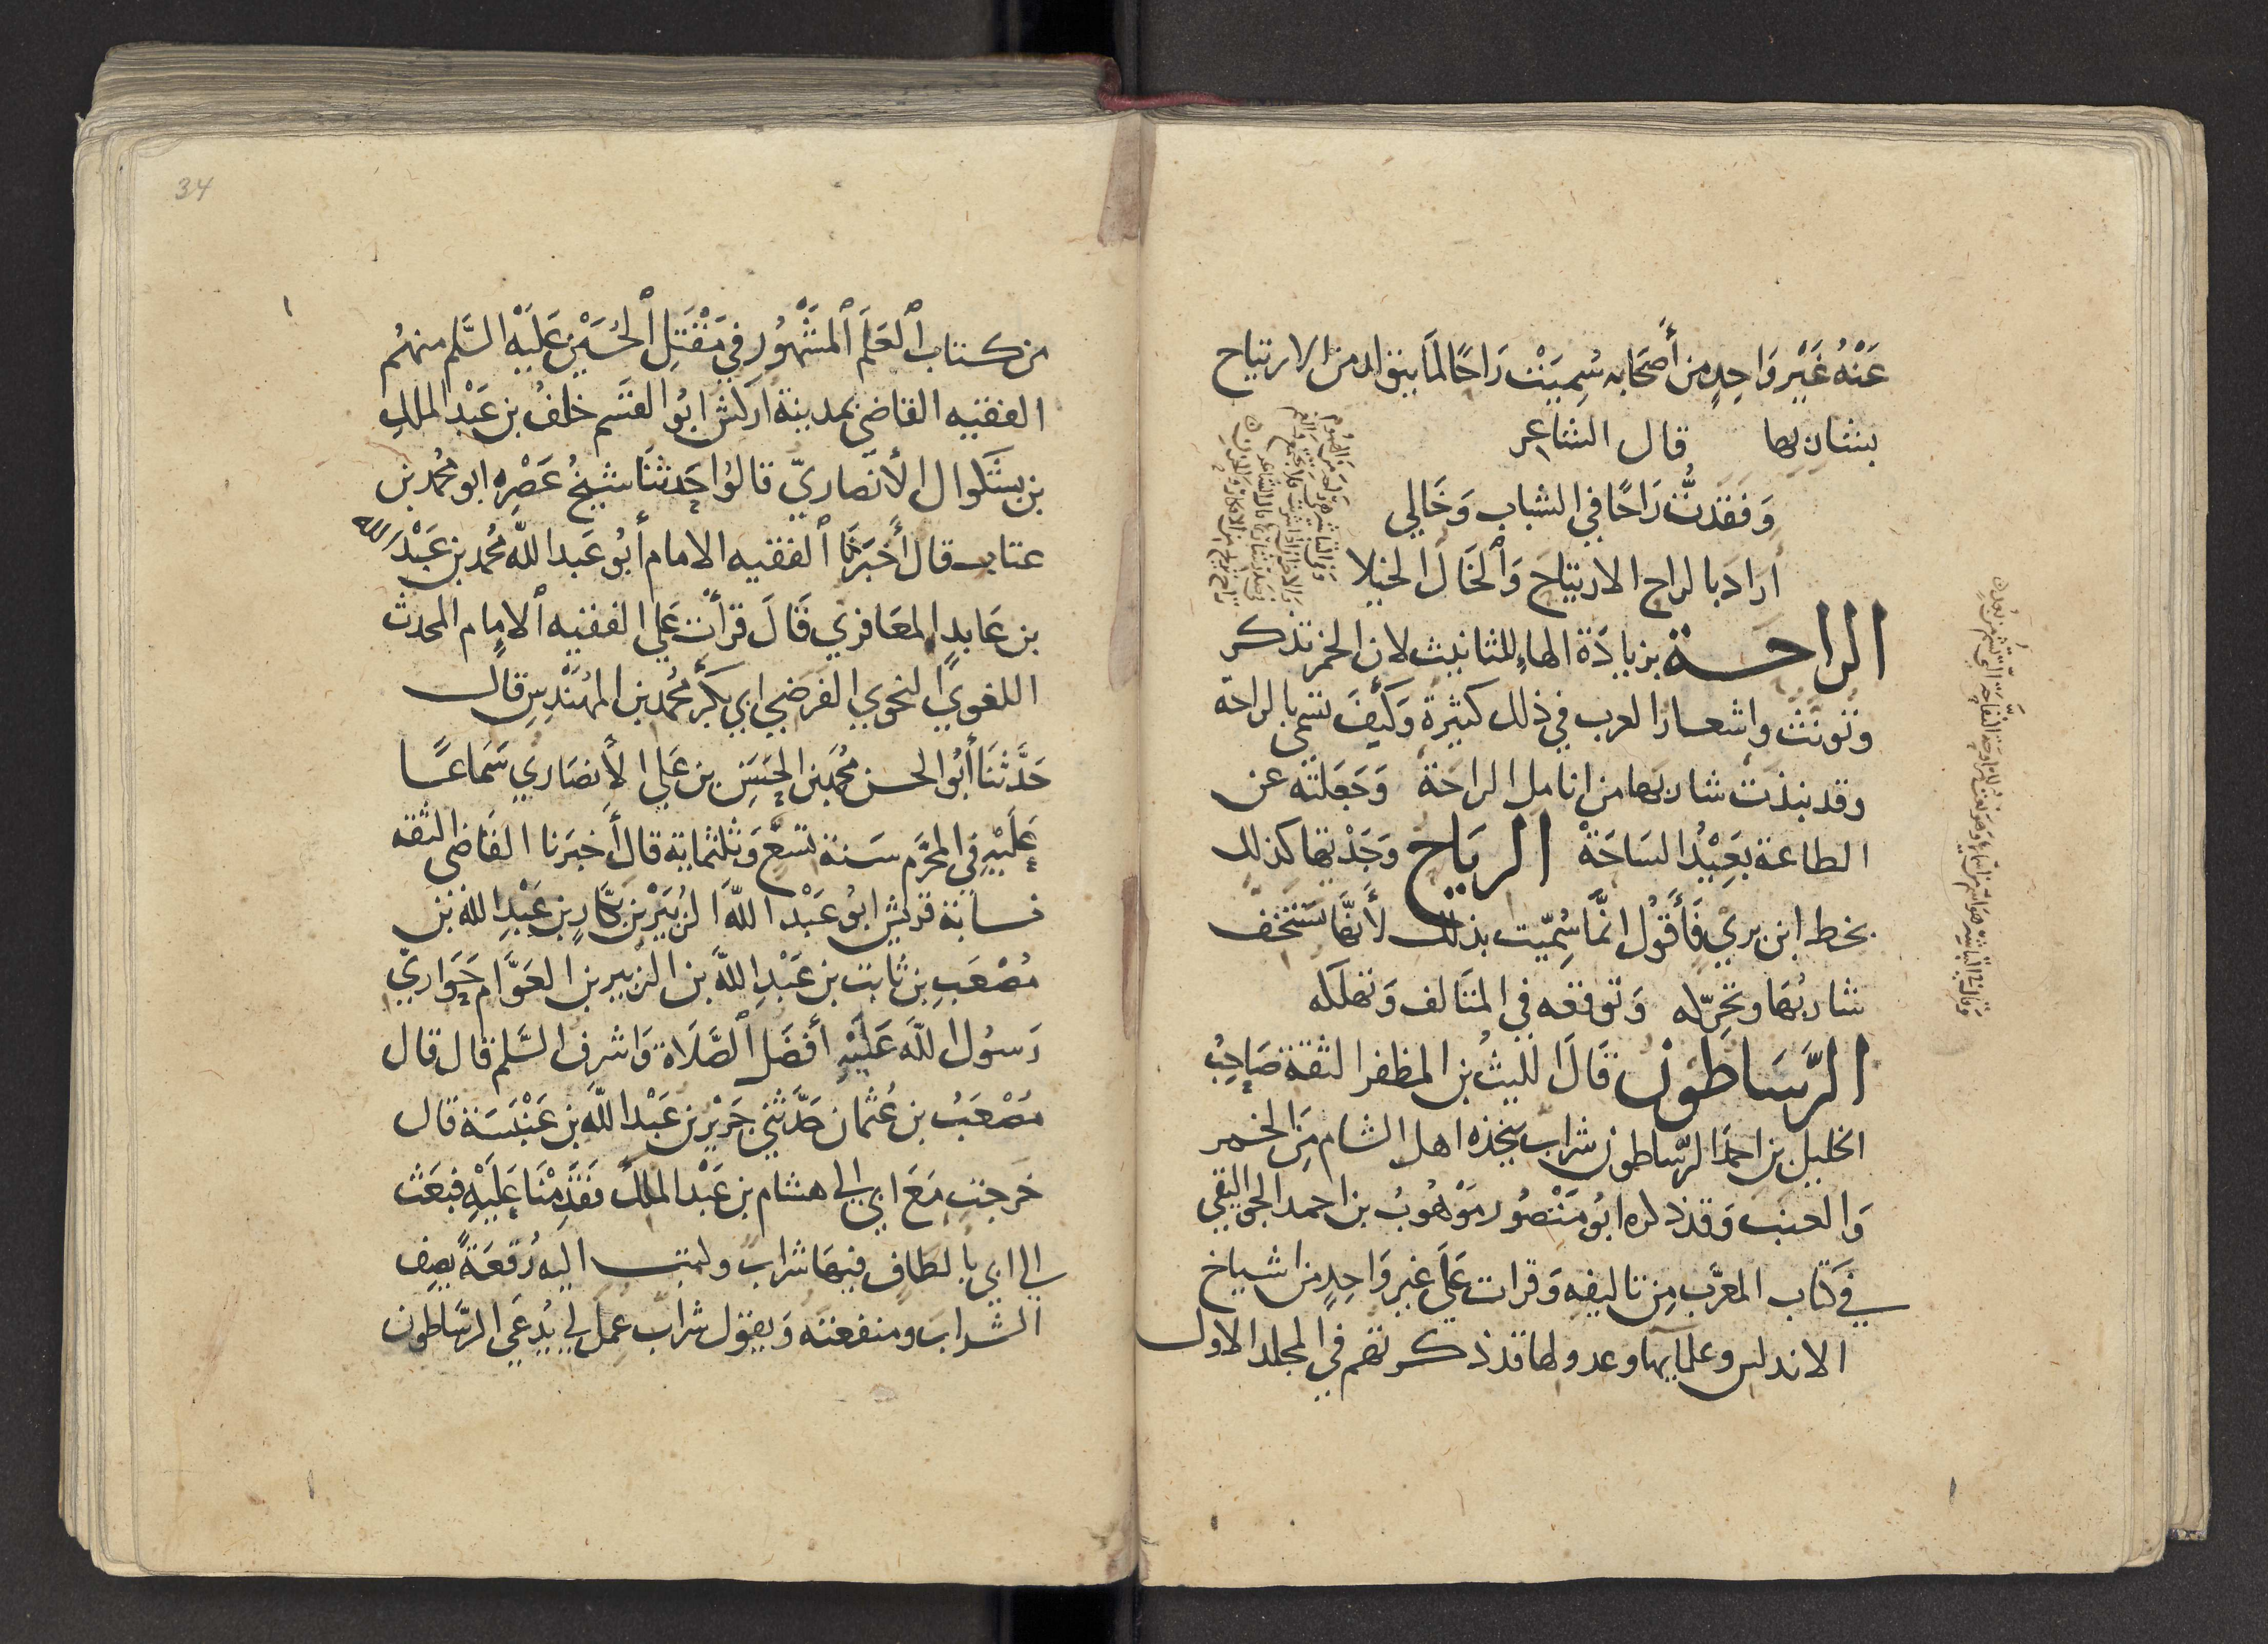 عَنْهُ غَيْر وَاحِدٍ من أَصحَابه سُمِيَتْ رَاحًا لمَا يتولد من الارتياح
بشاربها قال الشاعر
وَفَقَدْتُ رَاحًا في الشباب وَخَالي
أرادَ بالراح الارتياح وَالخَال الخيلا
الراحة بزيادَة الهاءِ للتانيث لان الخمر تذكر
وتونث واشعار العرب في ذلك كثيرة وَكَيْفَ تسمى بالراحة
وقد نبذت شاربها من انامل الراحَة وَجَعَلته عن
الطاعة بَعِيْد الساحَةْ الرياح وَجَدْتها كذلك
بخط ابن بري فَأَقوْل انَّمَا سُمِّيَت بذلك لأَنهَّا تستخف
شاربُهَا وتحرّله وَتوقعه في المتَالف وَتهلكه
الرَّسَاطوْن قَالَ الليثُ بن المظفر الثقة صَاحِبُ
الخليل بن احمدَ الرّساطون شراب يتخذه اهل الشام مِنَ الخمر
وَالعنب وَقد ذكره ابُو مَنْصُور مَوْهُوبُ بن احمد الجواليقي
في كتاب المعرَّب مِن تاليفه وَقرات عَلَى غير وَاحِدٍ من اشياخ
الاندلس وعلمايها وعدولها قد ذكرتهم في المجلد الاول
34
من كتاب العَلَم المشْهُور في مَقْتَلِ الحُسَيْن عَلَيْهِ السَّلم منهُم
الفقيه القاضي بمدينة اركش ابُو القسَم خلفُ بن عَبْد الملكِ
بن بشكوال الأَنصَاريّ قالوُا حَدثنَا شيخُ عَصْرِه ابو محُمد بن
عتاب قال أَخبَرَنَا الفقيه الامام أبُو عَبد الله محُمد بن عَبْد الله
بن عَابد المعَافري قَالَ قرأت عَلى الفقيه الامام المحدث
اللغوي النحوي الفرضي ابي بَكْر محُمد بن المهُنْدِس قال
حَدَّثنَا أبُو الحسن محُمد بن الحسَين بن عَلي الأَنصَاري سَمَاعًا
عَلَيْهِ في المحرَّم سَنة تسْع وَثلثماية قال أَخبَرَنا القَاضي الثقه
نسابة قريش ابو عَبْد اللهِ الزُبَيْر بن بكَّار بن عَبْدِ الله بن
مُصْعَبِ بن ثابت بن عَبْدِ اللهَّ بن الزبير بن العَوَّام حَوَاريّ
رَسُول اللهَ عَلَيْهِ أفضَل الصَّلَاة وَاشرف السَّلم قال قال
مُصْعَبُ بن عُثمان حَدَّثني جَرَيْر بن عَبْد اللهَّ بن عَنْبَسَة قال
خرجت مَعَ ابي الى هشام بن عَبْد الملك فقَدِمْنَا عَلَيْهِ فبَعَث
الى ابي بالطَاف فيهَا شراب وكتب اليه رُقعَةً يَصِف
الشراب ومنفعته وَيقوْل شراب عمل لي يُدعَى الرسَّاطون